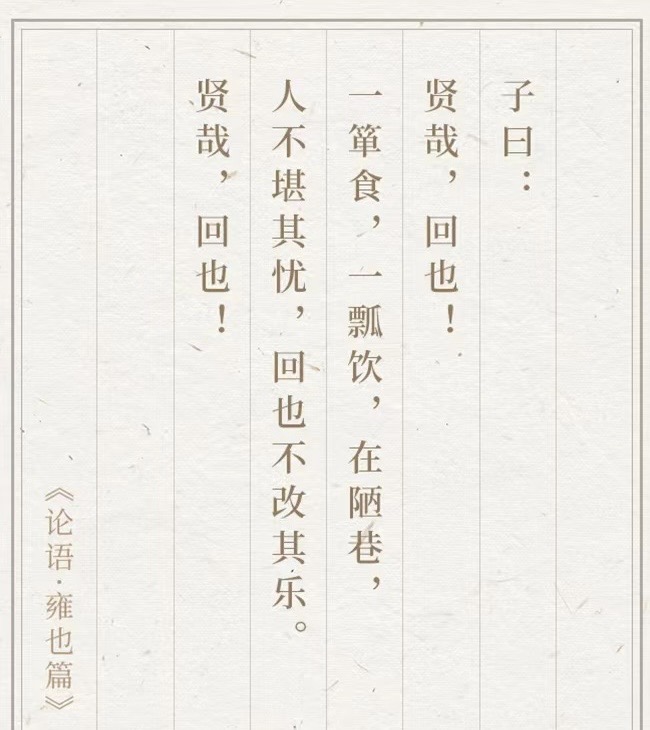 子曰：
贤哉，回也！
一箪食，一瓢饮，在陋巷，
人不堪其忧，回也不改其乐。
贤哉，回也！
《论语·雍也篇》